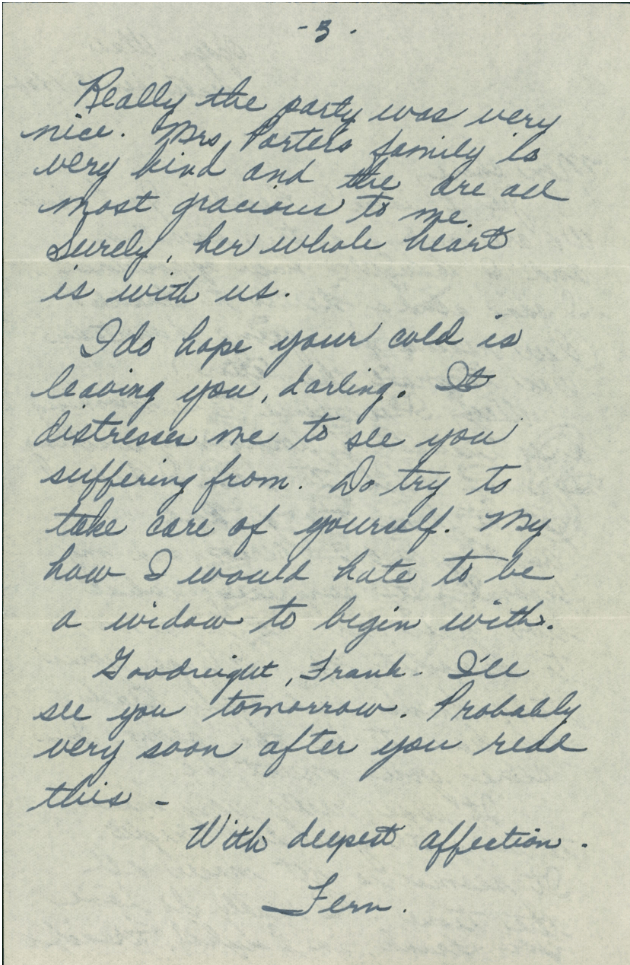 - 3 -
Really the party was very
nice. Mrs Porters family is
very kind and the are all
most gracious to me.
Surely, her whole heart
is with us.
I do hope your cold is
leaving you, darling. It
distresses me to see you
suffering from. Do try to
take care of yourself. My
how I would hate to be
a widow to begin with.
Goodnight, Frank - I'll
see you tomorrow. Probably
very soon after you read
this -
With deepest affection.
Fern.